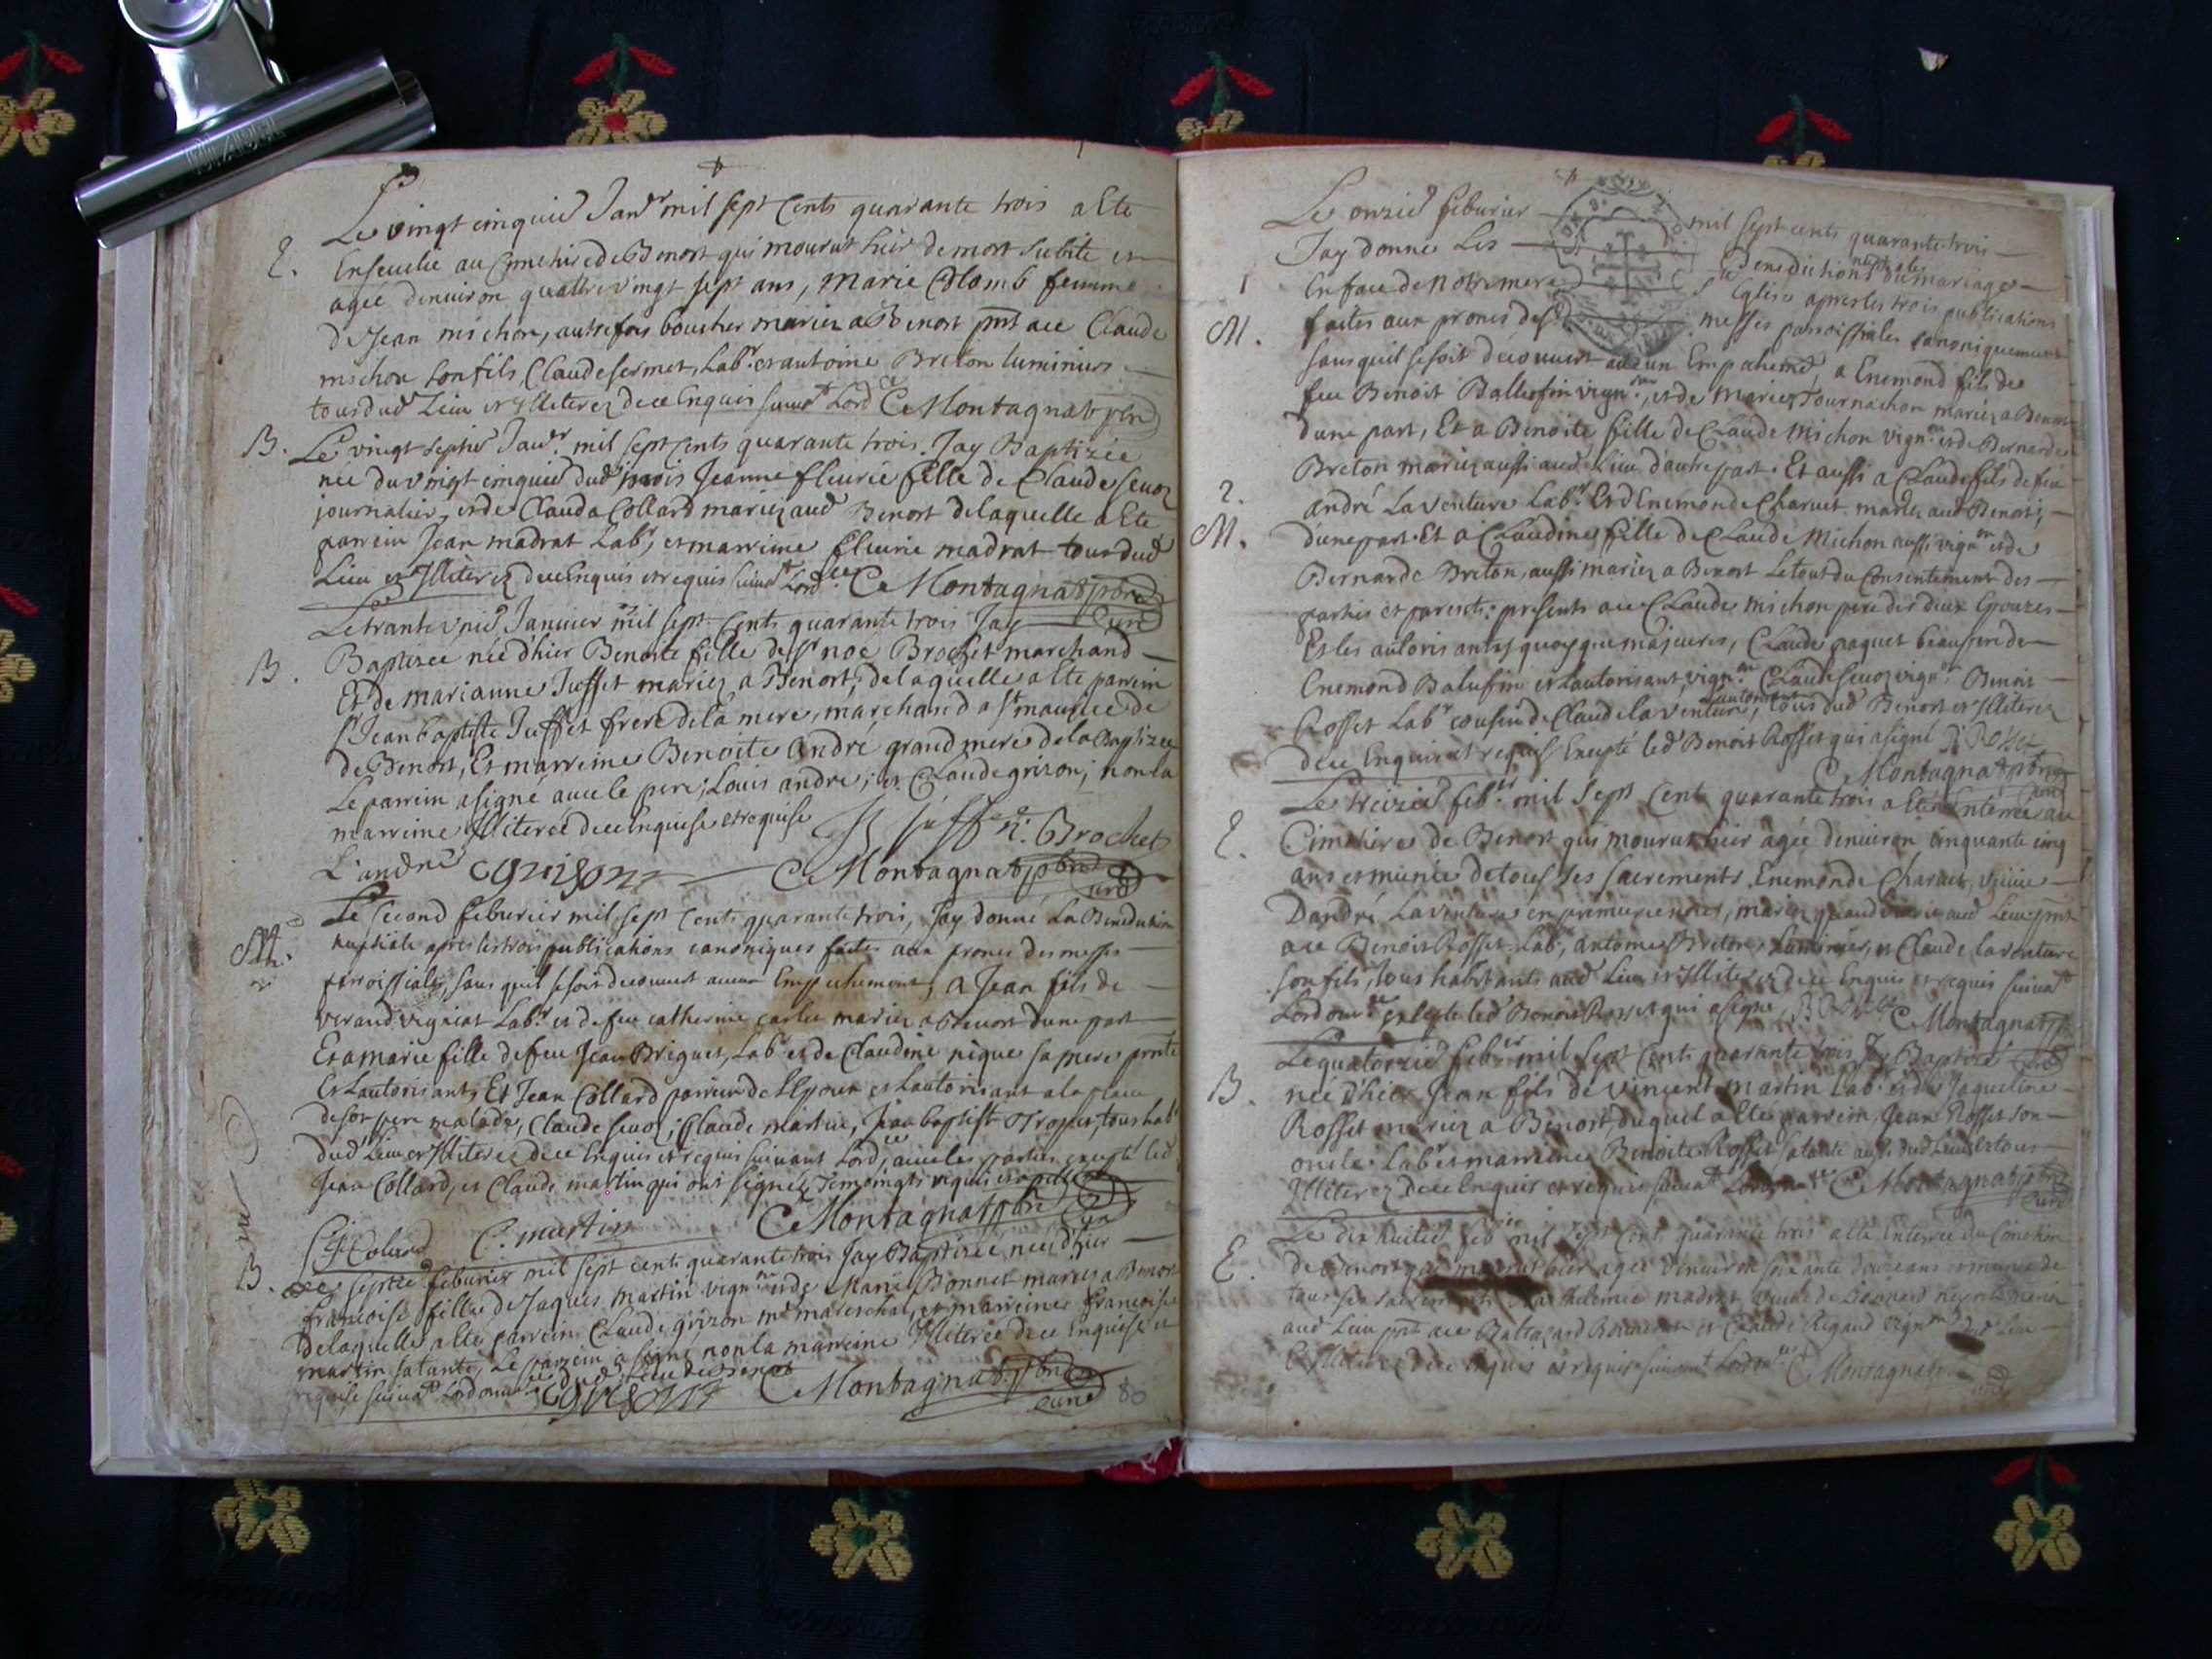 Le vingt cinquie Janr mil sept cents quarante trois a Ete
E. Enseuelie au Cimetire de Benost qui mourut hier de mort subite et
agée denuiron quattre vingt sept ans, Marie Colomb femme
d Jean michon, autrefois boucher mariez a Benost pnt ace Claude
michon son fils, Claude sermet, Labr. et antoine Breton luminier
tous dud Lieu et Illiterez de ce Enquis suiuat Lord ce C Montagnat pbre
B. Le vingt septie Janr. mil sept Cents quarante trois Jay Baptizée
née du vingt cinquie dud mois Jeanne fleurie fille de Claude seuoz
journalier, et de Clauda Collard mariez aud Benost de laquelle a Ete
parrein Jean madrat Labr, et marreine fleurie madrat tous dud
Lieu et Illiterez de ce Enquis et requis suiuat Lord ce C Montagnat pbre
Le trante vnie Januier mil sept Cents quarante trois Jay curé
B. Baptizee née d'hier Benoite fille de sr noe Brochet marchand
Et de marianne Juffet mariez a Benost, de laquelle a Ete parrein
sr Jean baptiste Juffet frere de la mere, marchand a st maurice de
de Benost, Et marreine Benoite andré grand mere de la Baptizee
Le parrein a signé auec le pere, Louis andre, et Claude grizon, non la
marreine Illiterée de ce Enquise et requise J B juffet n. Brochet
L'andre C grison C Montagnat pbre curé
Le second feburier mil sept Cents quarante trois, Jay donné La Benediction
M. nuptiale apres les trois publications canoniques faites aux prones des messes
parroissiales, sans quil se soit decouuert aucun Empechement, a Jean fils de
verand vignat Labr et de feu catherine carlet mariez a Benost dune part
Et a marie fille de feu Jean Briguet, Labr et de Claudine pique sa mere pnte
Et Lautorisant, Et Jean Collard parrein de L'Epoux et Lautorisant a la place
de son pere malade, Claude seuoz, Claude martin, Jean baptist trosset, tous habt
dud Lieu et Illiterez de ce Enquis et requis suiuant Lord ce, auec les parties excepté led
Jean Collard, et Claude martin qui ont signez Temoings requis et apellez
J Colard C. martin C Montagnat pbre curé
B. Le septie feburier mil sept cents quarante trois Jay Baptizée née d'hier
francoise fille de Jaques martin vignon et de Marie Bonnet mariez a Benost
de laquelle a Ete parrein Claude grizon me mareschal, et marreine francoise
martin sa tante, Le parrein a signé non la marreine Illiterée de ce Enquise et
requise suiuat Lordonnce dud Lieu de Benost C grison C Montagnat pbre
curé 80
Le onzie feburier mil sept cents quarante trois
Jay donné Les Benedictions nuptiales du mariage
1 En face de Notre mere ste Eglise apres les trois publications
M. faites aux prones des messes parroissiales canoniquement
sans quil se soit decouuert aucun Empechemt, a Enemond fils de
feu Benoist Ballufin vignon, et de Marie Tournachon mariez a Benost
dune part, Et a Benoite fille de Claude Michon vignon et de Bernarde
Breton mariez aussi aud Lieu d'autre part. Et aussi a Claude fils de feu
2. andré Lauenture Labr. Et d Enemonde Charuet mariez aud Benost,
M. dune part. Et a Claudine fille de Claude Michon aussi vignon et de
Bernarde Breton, aussi mariez a Benost Le tout du Consentement des
parties et parents: presents ace Claude Michon pere des deux Epouzes
Et les autorisant quoy que majeures, Claude paquet beaupere de
Enemond Balufin et Lautorisant, vignon, Claude seuoz vignon Benoit
Rosset Labr cousin de Claude la venture, Lautorisant tous dud Benost et Illiterez
de ce Enquis et requis Excepté led Benoist Rosset qui a signé B Rosset
C Montagnat pbre
Le treizie febr. mil Sept Cents quarante trois a Eté Enterrée au curé
E. Cimetire de Benost qui mourut hier agée denuiron cinquante cinq
ans et munie de tous les sacrements Enemonde Charuet, veuue
D'andré Lauenture en premieres noces, mariez quand viuoit aud Lieu pnt
ace Benoist Rosset Labr, antoine Breton, Luminier, et Claude lauenture
son fils, tous habitants aud Lieu et Illiterez de ce Enquis et requis suiuat
Lordonce excepte led Benoist Rosset qui a signe, B Rosset C Montagnat pbre
Le quatorzie febr mil sept Cents quarante trois Jay Baptizé curé
B. née d'hier Jean fils de vincent martin Labr et de Jaqueline
Rosset mariez a Benost duquel a Ete parrein Jean Rosset son
oncle Labr et marreine Benoite Rosset sa tante aussi dud Lieu et tous
Illiterez de ce Enquis et requis suiuat Lordonnce C Montagnat pbre
curé
Le dix huitie feb mil sept Cents quarante trois a Eté Enterrée du Cimetire
E. de Benost qui mourut hier agée denuiron soixante douze ans et munie de
tous ses sacrements madrat veuue de Leonard
aud Lieu pnt ace Baltazard et Claude Rigaud vignon dud Lieu
Et Illiterez de ce Enquis et requis suiuant Lordonce C Montagnat